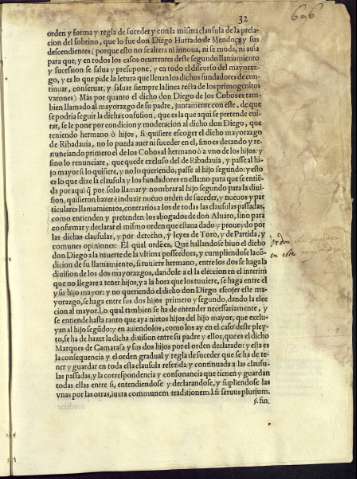 32
606
orden y forma y regla de suceder y con la misma clausula de la prela-
cion del sobrino, que lo fue don Diego Hurtado de Mendoça y sus
descendientes (porque esto no se altera ni innoua, ni se muda, ni aula
para que; y en todos los casos ocurrentes deste segundo llamamiento
y sucession se salua y presupone, y en todo el discurso del mayoraz-
go, y es lo que pide la letura que lleuan los dichos fundadores de con-
tinuar, conseruar, y saluar siempre la linea recta de los primogenitos
varones) Mas por quanto el dicho don Diego de los Cobos se tam-
bien llamado al mayorazgo de su padre, juntamente con este, de que
se podria seguir la dicha confusion, que es la que aqui se pretende eui-
tar, se le pone por condicion y moderacion al dicho don Diego, que
teniendo hermano ò hijos, si quisiere escoger el dicho mayorazgo
de Ribadauia, no lo pueda auer ni suceder en el, sino es dexando y re-
nunciando primero el de los Cobos al hermano ò a vno de los hijos: y
sino lo renunciare, que quede excluso del de Ribadauia, y passe al hi-
jo mayor si lo quisiere, y no lo queriendo, passe al hijo segundo: y esto
es lo que dize la clausula y los fundadores, es llano para que se entié-
da
por aqui q̃ por solo llamar y nombrar al hijo segundo para la diui-
sion, quisieron hazer è induzir nueuo orden de suceder, y nueuos y par-
ticulares llamamientos, contrarios a los de todas las clausulas passadas,
como entienden y pretenden los abogados de don Aluaro, sino para
confirmar y declarar el mismo orden que estaua dado y proceydo por
las dichas clausulas, y por derecho, y leyes de Toro, y de Partida, y
comunes opiniones: El qual ordẽ es, Que hallandose biuo el dicho
don Diego a la muerte de la vltima posseedora, y cumpliendose la cõ-
dicion de su llamamiento, si tuuiere hermano, entre los dos se haga la
diuision de los dos mayorazgos, dandole a el la eleccion en el interim
que no llegare a tener hijos, y a la hora que los tuuiere, se haga entre el
y su hijo mayor: y no queriendo el dicho don Diego escoger este ma-
yorazgo, se haga entre sus dos hijos primero y segundo, dando la elec-
cion al mayor. Lo qual tambien se ha de entender necessariamente, y
se entiende hasta tanto que aya nietos hijos del hijo mayor, que exclu-
yan al hijo segũdo: y en auiendolos, como los ay en el caso deste pley-
to, se ha de hazer la dicha diuision entre su padre y ellos, que es el dicho
Marques de Camarasa y sus dos hijos por el orden declarado: y esta es
la consequencia y el orden gradual y regla de suceder que se ha de te-
ner y guardar en toda esta clausula referida y continuada a las clausu-
las passadas, y la correspondencia y consonancia que tienen y guardan
todas ellas entre si, entendiendose y declarandose, y supliendose las
vnas por las otras, iuxta communem traditionem. l. si seruus plurium.
§. fin.